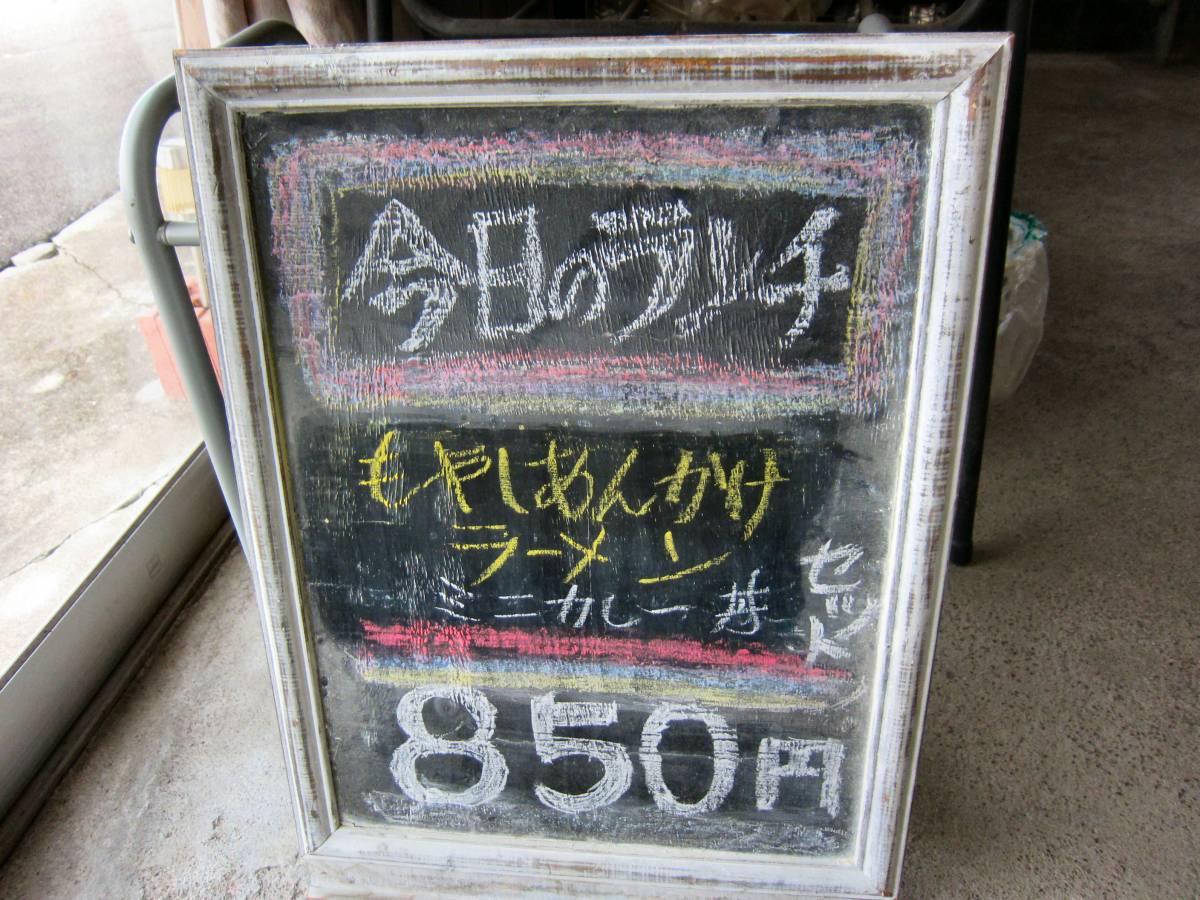 今日のランチ
もやしあんかけ
ラーメン
ミニカレー丼
セット
850円